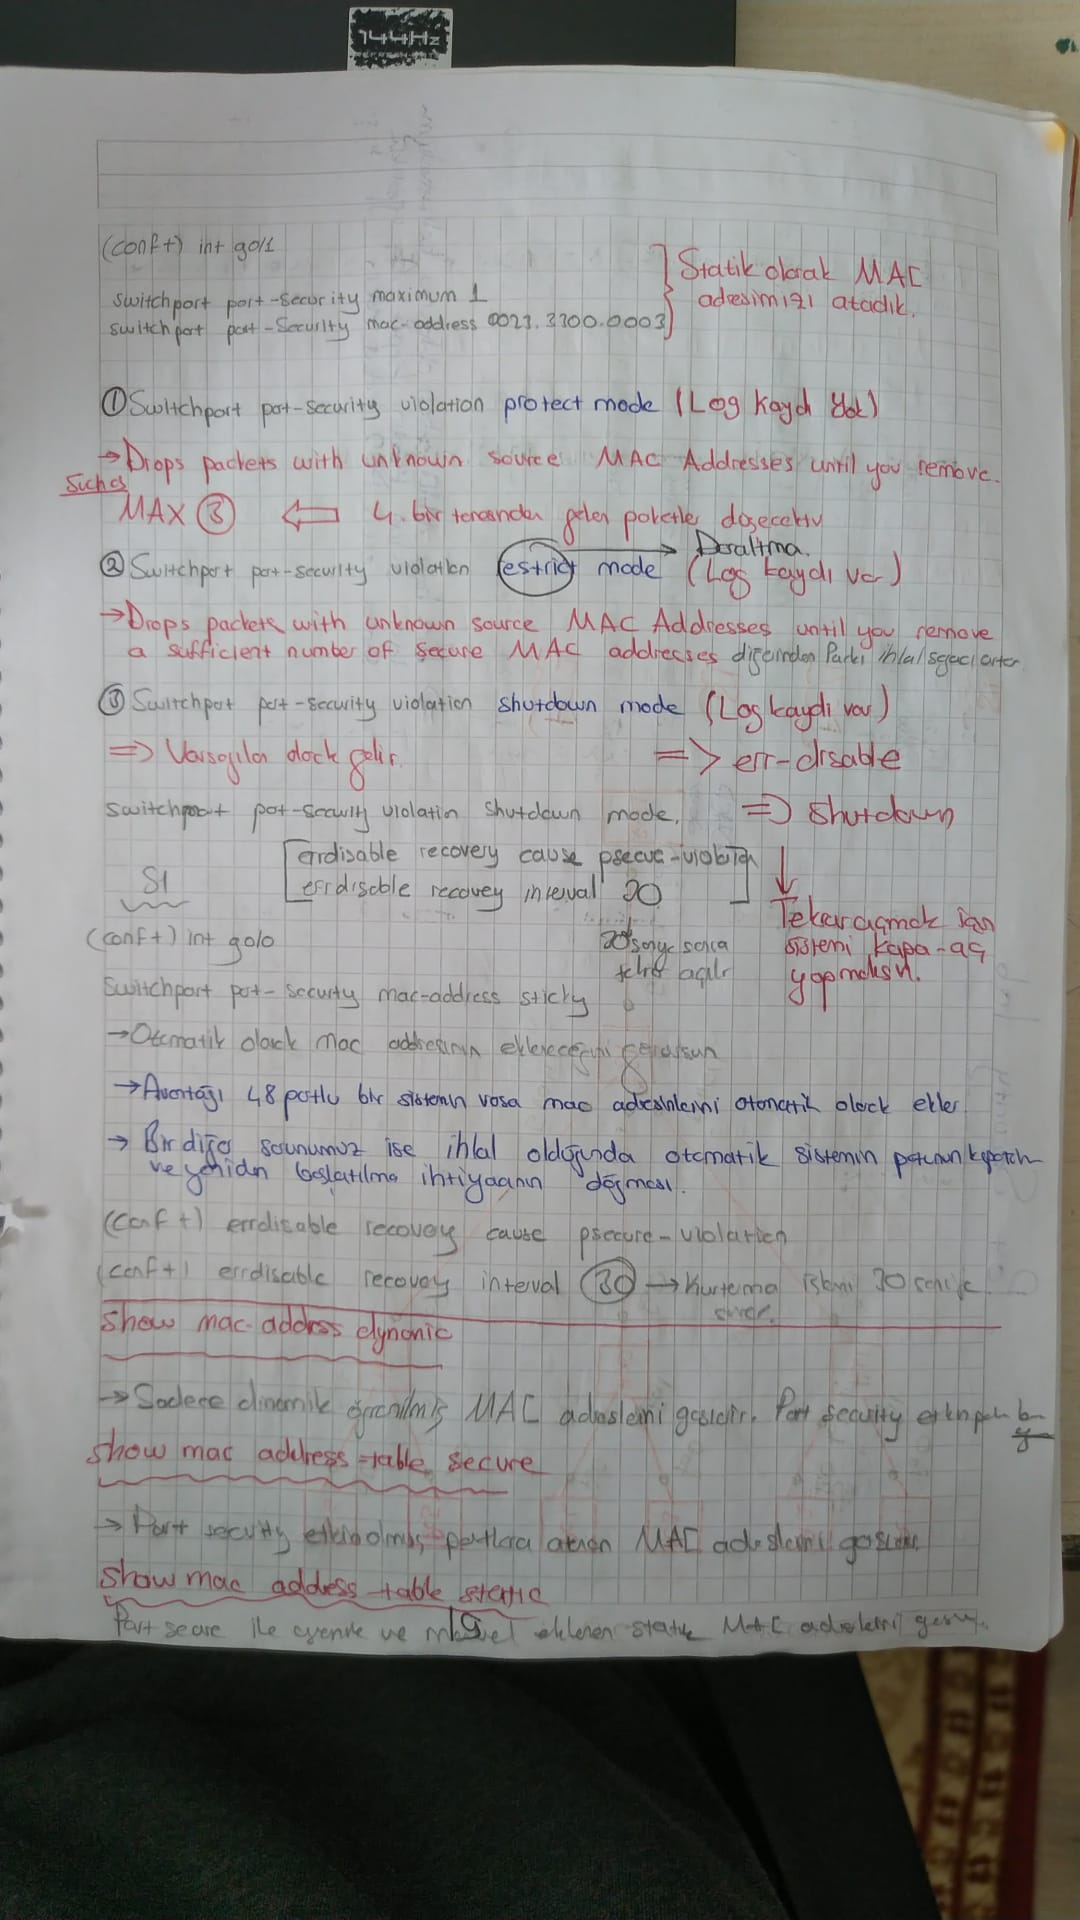 144Hz
(conf t) int g0/1
switchport port-security maximum 1
switchport port-security mac-address 0023.3300.0003
Statik olarak MAC
adresimizi atadık.
① Switchport port-security violation protect mode (Log kaydı Yok)
→ Drops packets with unknown source MAC Addresses until you remove.
MAX ③ ⇐ 4. bir gelen paketler düşecektir
→ Daraltma.
② Switchport port-security violation restrict mode (Log kaydı var)
→ Drops packets with unknown source MAC Addresses until you remove
a sufficient number of secure MAC addresses diğerinden Farkı ihlal sayacı artar
③ Switchport port-security violation shutdown mode (Log kaydı var)
⇒ Varsayılan olarak gelir. ⇒ err-disable
switchport port-security violation shutdown mode. ⇒ shutdown
errdisable recovery cause psecure-violation
S1
errdisable recovery interval 30
Tekrar açmak için
sistemi kapa-aç
yapmalısın.
(conf t) int g0/0
30 saniye sonra
tekrar açılır
Switchport port-security mac-address sticky
→ Otomatik olarak mac addresinin ekleneceğini
→ Avantajı 48 portlu bir sistemin varsa mac adreslerini otomatik olarak ekler
→ Bir diğer sorunumuz ise ihlal olduğunda otomatik sistemin portunun kapatılı
ve yeniden başlatılma ihtiyacının doğması.
(conf t) errdisable recovery cause psecure-violation
(conf t) errdisable recovery interval 30 → Kurtarma işlemi 30 saniye
sürer.
show mac-address dynamic
→ Sadece dinamik öğrenilmiş MAC adreslerini gösterir. Port security
show mac address-table secure
→ Port security etkin olmuş portlara atanan MAC adreslerini gösterir
show mac address-table static
Port secure ile ve manuel eklenen statik MAC adreslerini